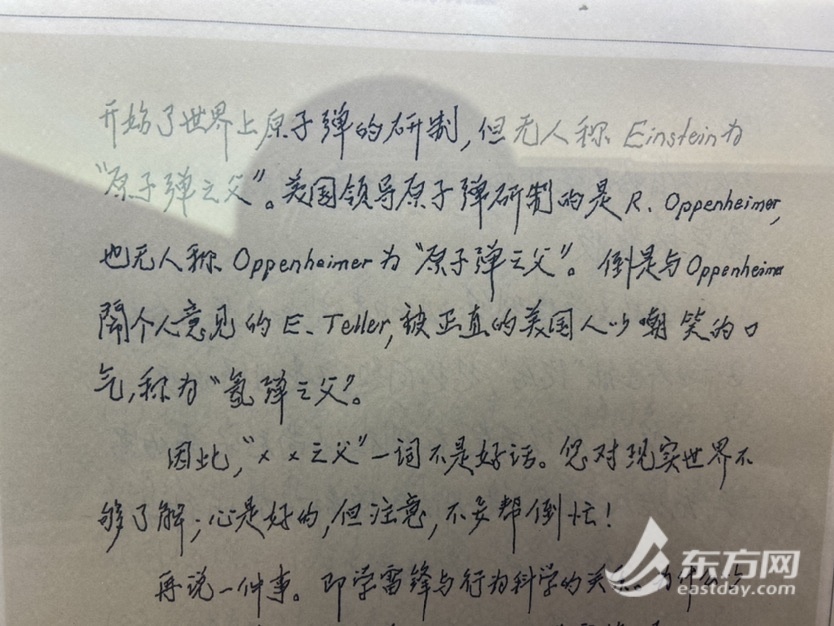 开始了世界上原子弹的研制,但无人称 Einstein 为
“原子弹之父”。美国领导原子弹研制的是 R. Oppenheimer,
也无人称 Oppenheimer 为“原子弹之父”。倒是与 Oppenheimer
闹个人意见的 E. Teller,被正直的美国人以嘲笑的口
气,称为“氢弹之父”。
因此,“××之父”一词不是好话。您对现实世界不
够了解;心是好的,但注意,不要帮倒忙!
再说一件事。即学雷锋与行为科学的关系。
东方网
eastday.com